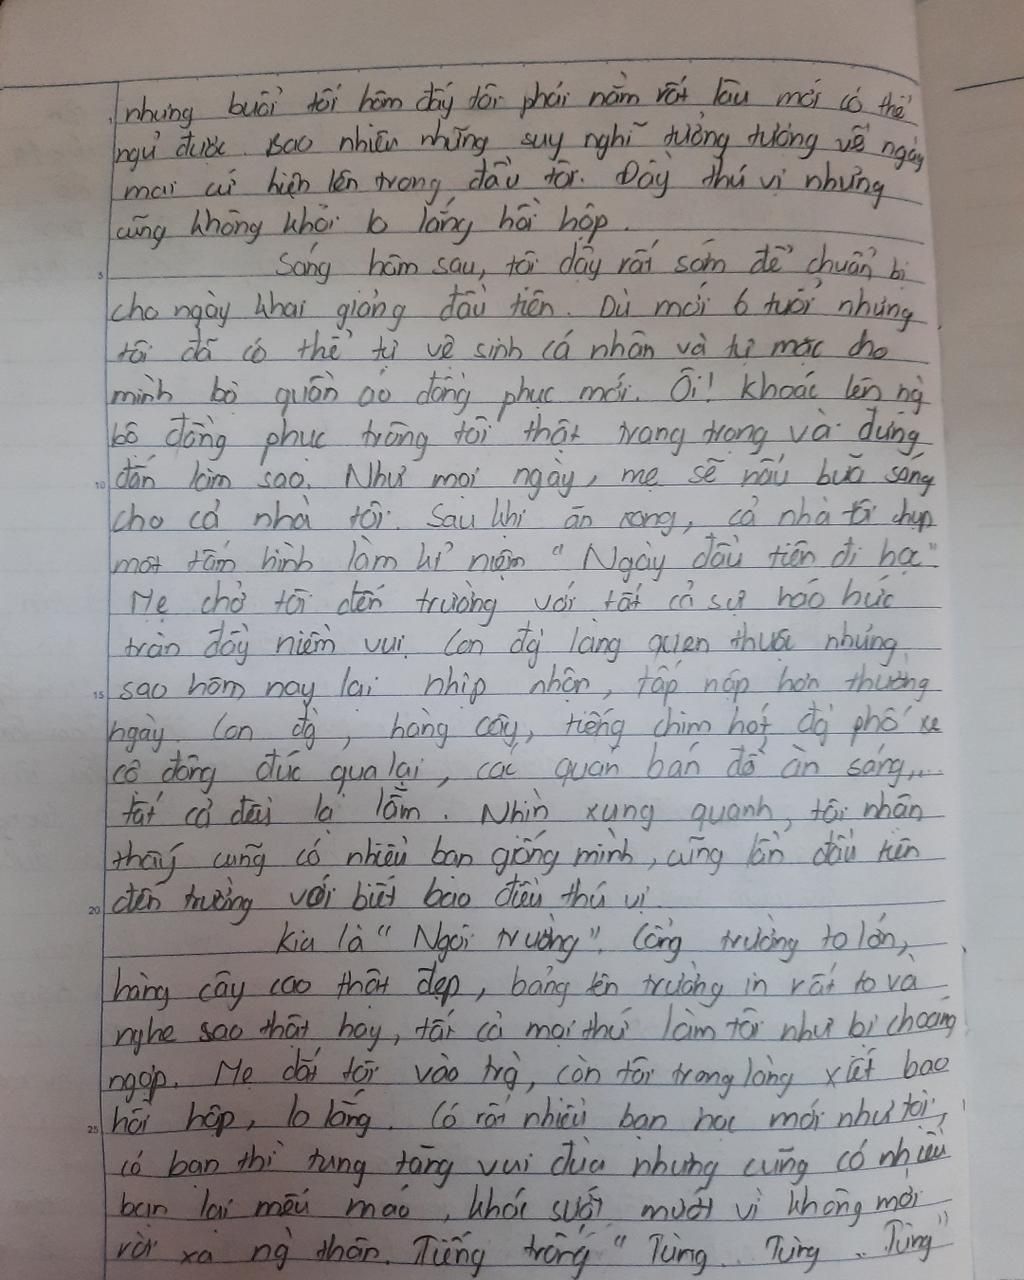 nhưng buổi tối hôm đấy tôi phải nằm rất lâu mới có thể
ngủ được. Bao nhiêu những suy nghĩ tưởng tượng về ngày
mai cứ hiện lên trong đầu tôi. Đầy thú vị nhưng
cũng không khỏi lo lắng hồi hộp.
5 Sáng hôm sau, tôi dậy rất sớm để chuẩn bị
cho ngày khai giảng đầu tiên. Dù mới 6 tuổi nhưng
tôi đã có thể tự vệ sinh cá nhân và tự mặc cho
mình bộ quần áo đồng phục mới. Ôi! Khoác lên ng`
bộ đồng phục trông tôi thật trang trọng và đứng
10 đắn làm sao. Như mọi ngày, mẹ sẽ nấu bữa sáng
cho cả nhà tôi. Sau khi ăn xong, cả nhà tôi chụp
một tấm hình làm kỉ niệm "Ngày đầu tiên đi học"
Mẹ chở tôi đến trường với tất cả sự háo hức
tràn đầy niềm vui. Con đg` làng quen thuộc nhưng
15 sao hôm nay lại nhịp nhộn, tấp nập hơn thường
ngày. Con đg`, hàng cây, tiếng chim hót, đg` phố xe
cộ đông đúc qua lại, các quán bán đồ ăn sáng,...
tất cả đều lạ lắm. Nhìn xung quanh, tôi nhận
thấy cũng có nhiều bạn giống mình, cũng lần đầu tiên
20 đến trường với biết bao điều thú vị.
Kia là "Ngôi trường". Cổng trường to lớn,
hàng cây cao thật đẹp, bảng tên trường in rất to và
nghe sao thật hay, tất cả mọi thứ làm tôi như bị choáng
ngợp. Mẹ dắt tôi vào trg`, còn tôi trong lòng xiết bao
25 hồi hộp, lo lắng. Có rất nhiều bạn học mới như tôi,
có bạn thì tung tăng vui đùa nhưng cũng có nhiều
bạn lại mếu máo, khóc sướt mướt vì không muốn
rời xa ng` thân. Tiếng trống "Tùng.. Tùng.. Tùng"